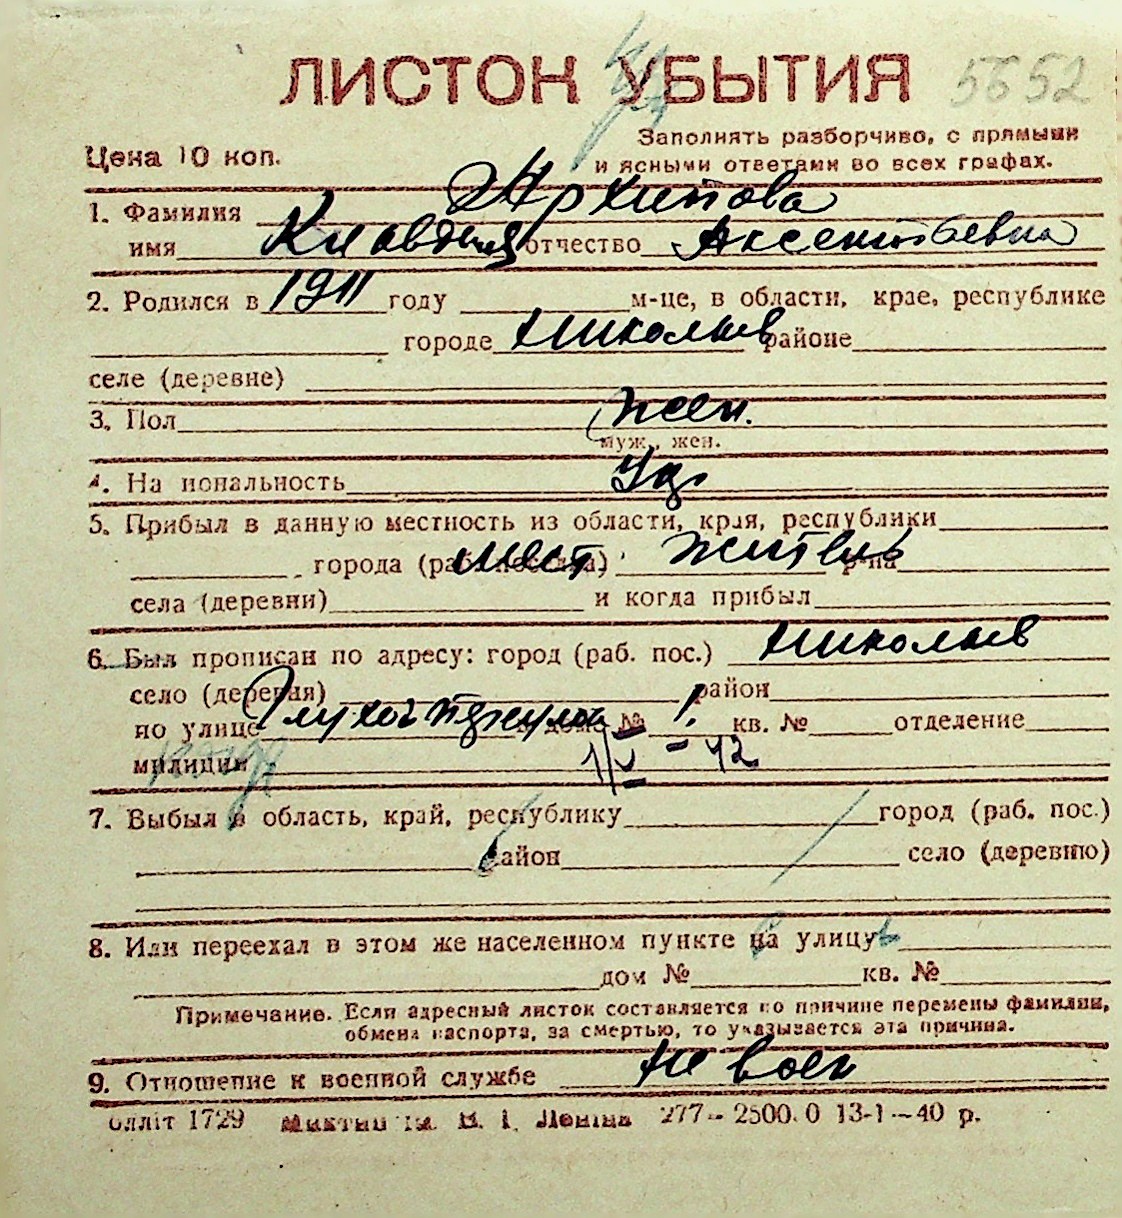 ЛИСТОК УБЫТИЯ 5652
Цена 10 коп.
Заполнять разборчиво, с прямыми
и ясными ответами во всех графах.
1. Фамилия Архипова
имя Клавдия отчество Аксентьевна
2. Родился в 1911 году м-це, в области, крае, республике
городе Николаев районе
селе (деревне)
3. Пол жен.
муж., жен.
4. На иональность
5. Прибыл в данную местность из области, края, республики
города (раб. поселка) мест. житель р-на
села (деревни) и когда прибыл
6. Был прописан по адресу: город (раб. пос.) Николаев
село (деревня) район
по улице дома № 1. кв. № отделение
милиции 1/V - 42
7. Выбыл в область, край, республику город (раб. пос.)
район село (деревню)
8. Или переехал в этом же населенном пункте на улицу
дом № кв. №
Примечание. Если адресный листок составляется по причине перемены фамилии,
обмена паспорта, за смертью, то указывается эта причина.
9. Отношение к военной службе не воен
1729 В. І. Леніна 277–2500.0 13-1–40 р.